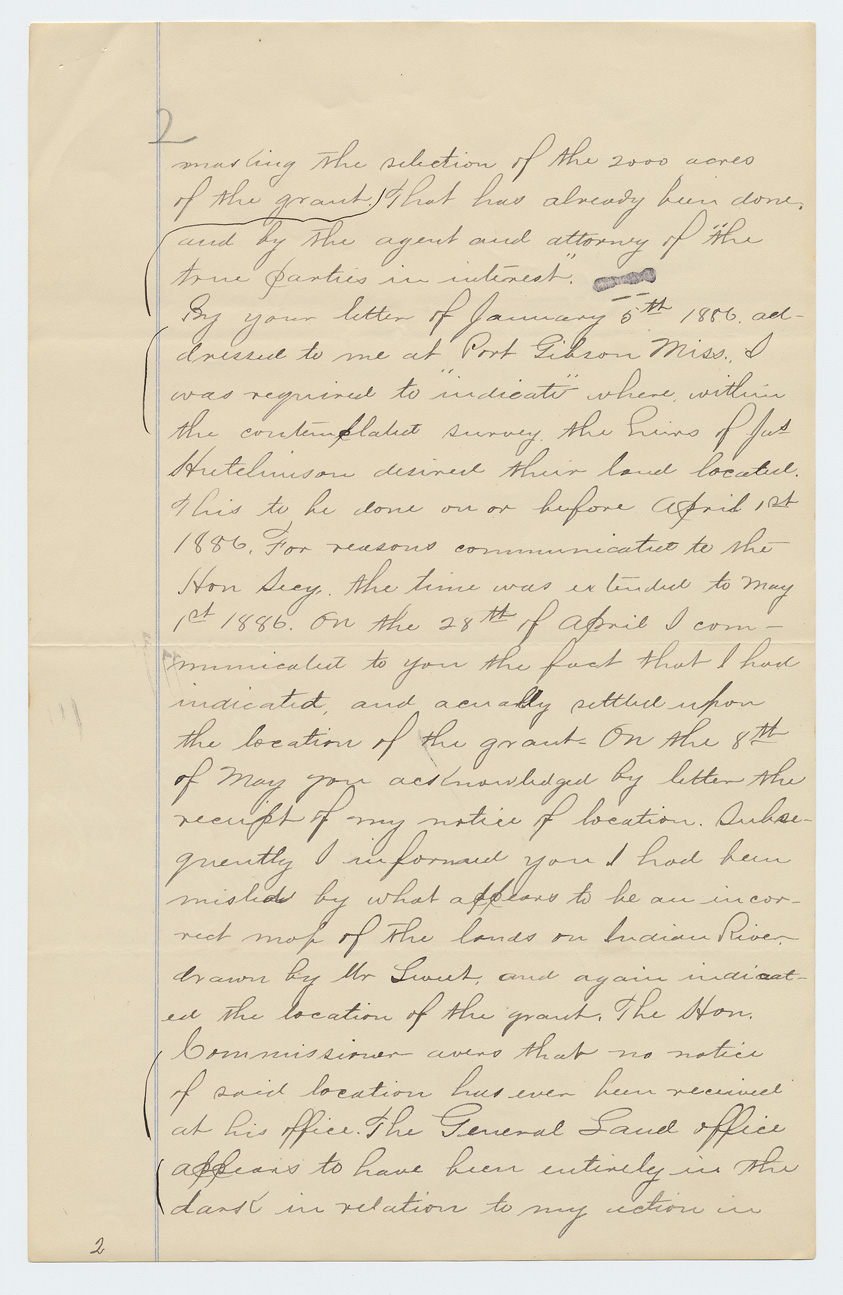 2
making the selection of the 2000 acres
of the grant.) That has already been done,
and by the agent and attorney of "the
true parties in interest".
By your letter of January 5th 1886. ad-
dressed to me at Port Gibson Miss., I
was required to "indicate" where, within
the contemplated survey, the heirs of Jas
Hutchinson desired their land located.
This to be done on or before April 1st
1886. For reasons communicated to the
Hon Secy. the time was extended to May
1st 1886. On the 28th of April I com-
municated to you the fact that I had
indicated, and acually settled upon
the location of the grant- On the 8th
of May you acknowledged by letter the
receipt of my notice of location. Subse-
quently I informed you I had been
misled by what appears to be an incor-
rect map of the lands on Indian River
drawn by Mr Sweet, and again indicat-
ed the location of the grant. The Hon.
Commissioner avers that no notice
of said location has ever been received
at his office. The General Land office
appears to have been entirely in the
dark in relation to my action in
2